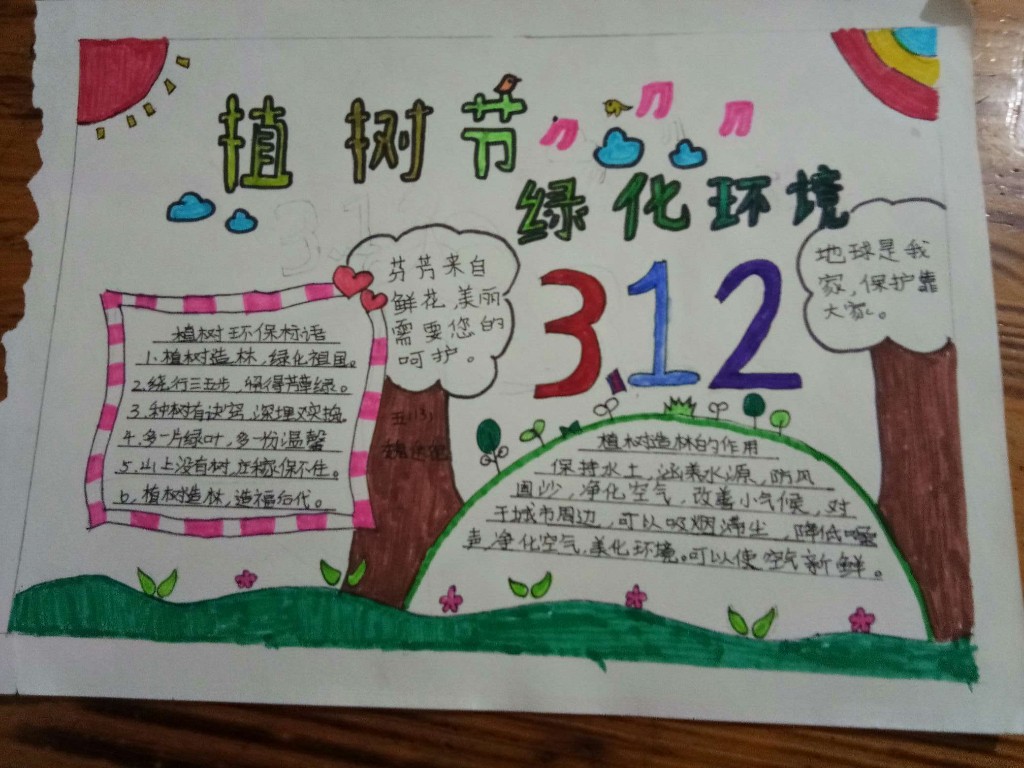 植树节
绿化环境
312
芬芳来自
鲜花,美丽
需要您的
呵护。
地球是我
家,保护靠
大家。
植树环保标语
1、植树造林,绿化祖国。
2、绕行三五步,留得芳草绿。
3、种树有诀窍,深埋又实捣。
4、多一片绿叶,多一份温馨
5、山上没有树,庄稼保不住。
6、植树造林,造福后代。
五(3)
植树造林的作用
保持水土,涵养水源,防风
固沙,净化空气,改善小气候,对
于城市周边,可以吸烟滞尘,降低噪
声,净化空气,美化环境。可以使空气新鲜。